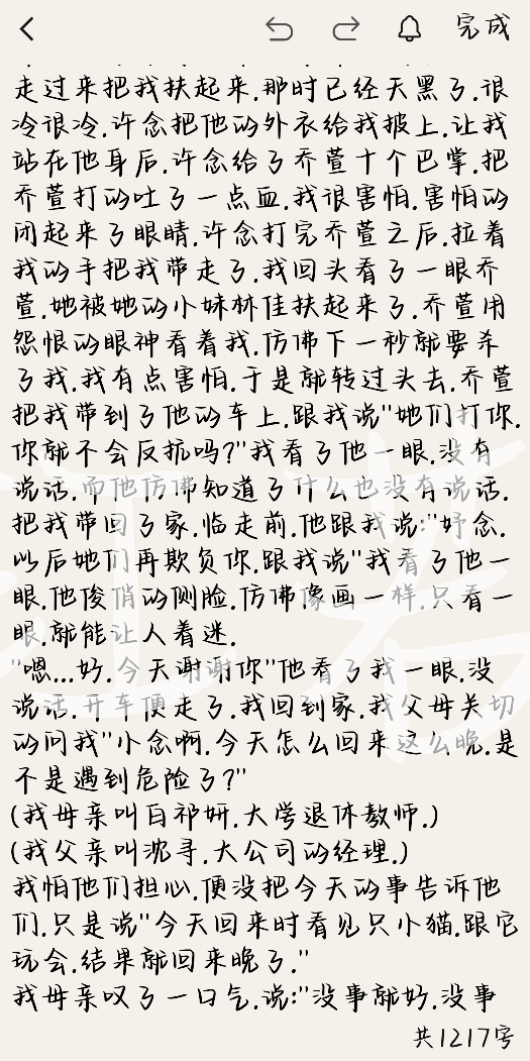 完成
走过来把我扶起来.那时已经天黑了.很
冷很冷.许念把他的外衣给我披上.让我
站在他身后.许念给了乔萱十个巴掌.把
乔萱打的吐了一点血.我很害怕.害怕的
闭起来了眼睛.许念打完乔萱之后.拉着
我的手把我带走了.我回头看了一眼乔
萱.她被她的小妹林佳扶起来了.乔萱用
怨恨的眼神看着我.仿佛下一秒就要杀
了我.我有点害怕.于是就转过头去.乔萱
把我带到了他的车上.跟我说"她们打你.
你就不会反抗吗?"我看了他一眼.没有
说话.而他仿佛知道了什么也没有说话.
把我带回了家.临走前.他跟我说:"妤念.
以后她们再欺负你.跟我说"我看了他一
眼.他俊俏的侧脸.仿佛像画一样.只看一
眼.就能让人着迷.
"嗯...好.今天谢谢你"他看了我一眼.没
说话.开车便走了.我回到家.我父母关切
的问我"小念啊.今天怎么回来这么晚.是
不是遇到危险了?"
(我母亲叫白祁妍.大学退休教师.)
(我父亲叫沈寻.大公司的经理.)
我怕他们担心.便没把今天的事告诉他
们.只是说"今天回来时看见只小猫.跟它
玩会.结果就回来晚了."
我母亲叹了一口气.说:"没事就好.没事
共1217字